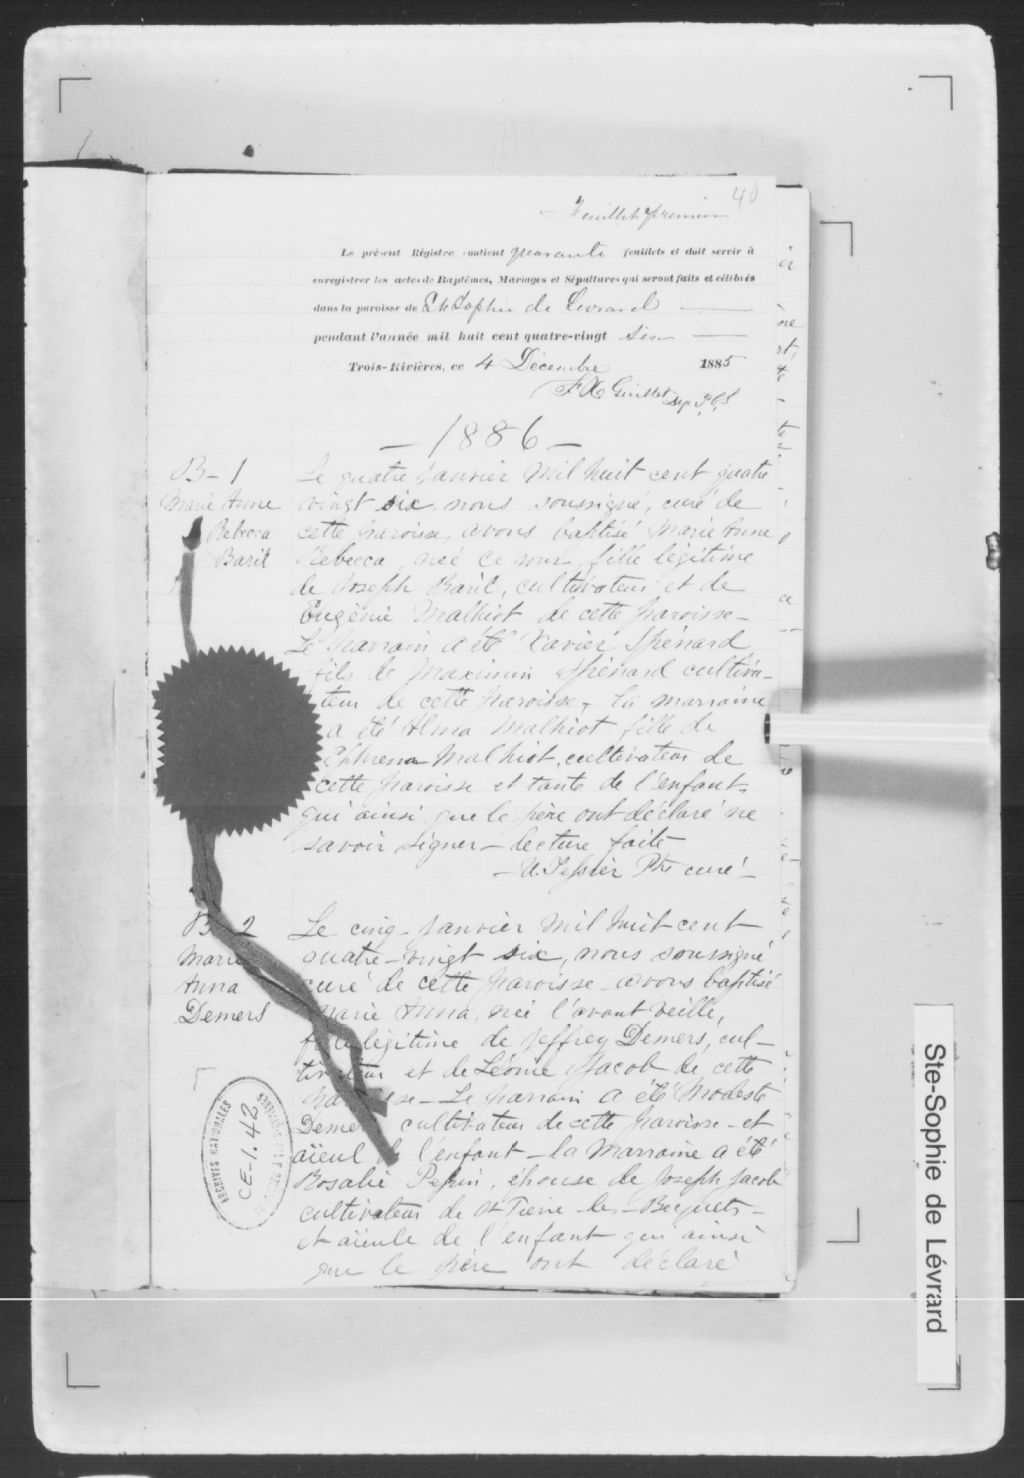 40
Feuillet premier
Le présent Régistre contient quarante feuillets et doit servir à
enregistrer les actes de Baptêmes, Mariages et Sépultures qui seront faits et célébrés
dans la paroisse de Ste Sophie de Levrard
pendant l'année mil huit cent quatre-vingt six
Trois-Rivières, ce 4 Décembre 1885
F X Guillet Dep P.C.S
- 1886 -
B-1
Marie Anne
Rebecca
Baril
Le quatre Janvier Mil huit cent quatre
vingt six, nous soussigné, curé de
cette paroisse, avons baptisé Marie Anne
Rebecca, née ce jour, fille légitime
de Joseph Baril, cultivateur et de
Eugénie Malhiot de cette paroisse-
Le Parrain a été Xavier Spénard
fils de Maximin Spénard cultiva-
teur de cette paroisse, la marraine
a été Alma Malhiot fille de
Ephrem Malhiot, cultivateur de
cette paroisse et tante de l'enfant
qui ainsi que le père ont déclaré ne
savoir signer - lecture faite
- U. Tessier Ptre curé -
B 2
Marie
Anna
Demers
Le cinq Janvier Mil huit cent
quatre-vingt six, nous soussigné
curé de cette paroisse avons baptisé
Marie Anna, née l'avant veille,
fille légitime de Jeffrey Demers, cul-
tivateur et de Léonie Jacob de cette
paroisse - Le parrain a été Modeste
Demers cultivateur de cette paroisse - et
aïeul de l'enfant - la Marraine a été
Rosalie Pepin, épouse de Joseph Jacob
cultivateur de St Pierre-les-Becquets-
et aïeule de l'enfant qui ainsi
que le père ont déclaré
ARCHIVES NATIONALES
CE-1.42
Ste-Sophie de Lévrard